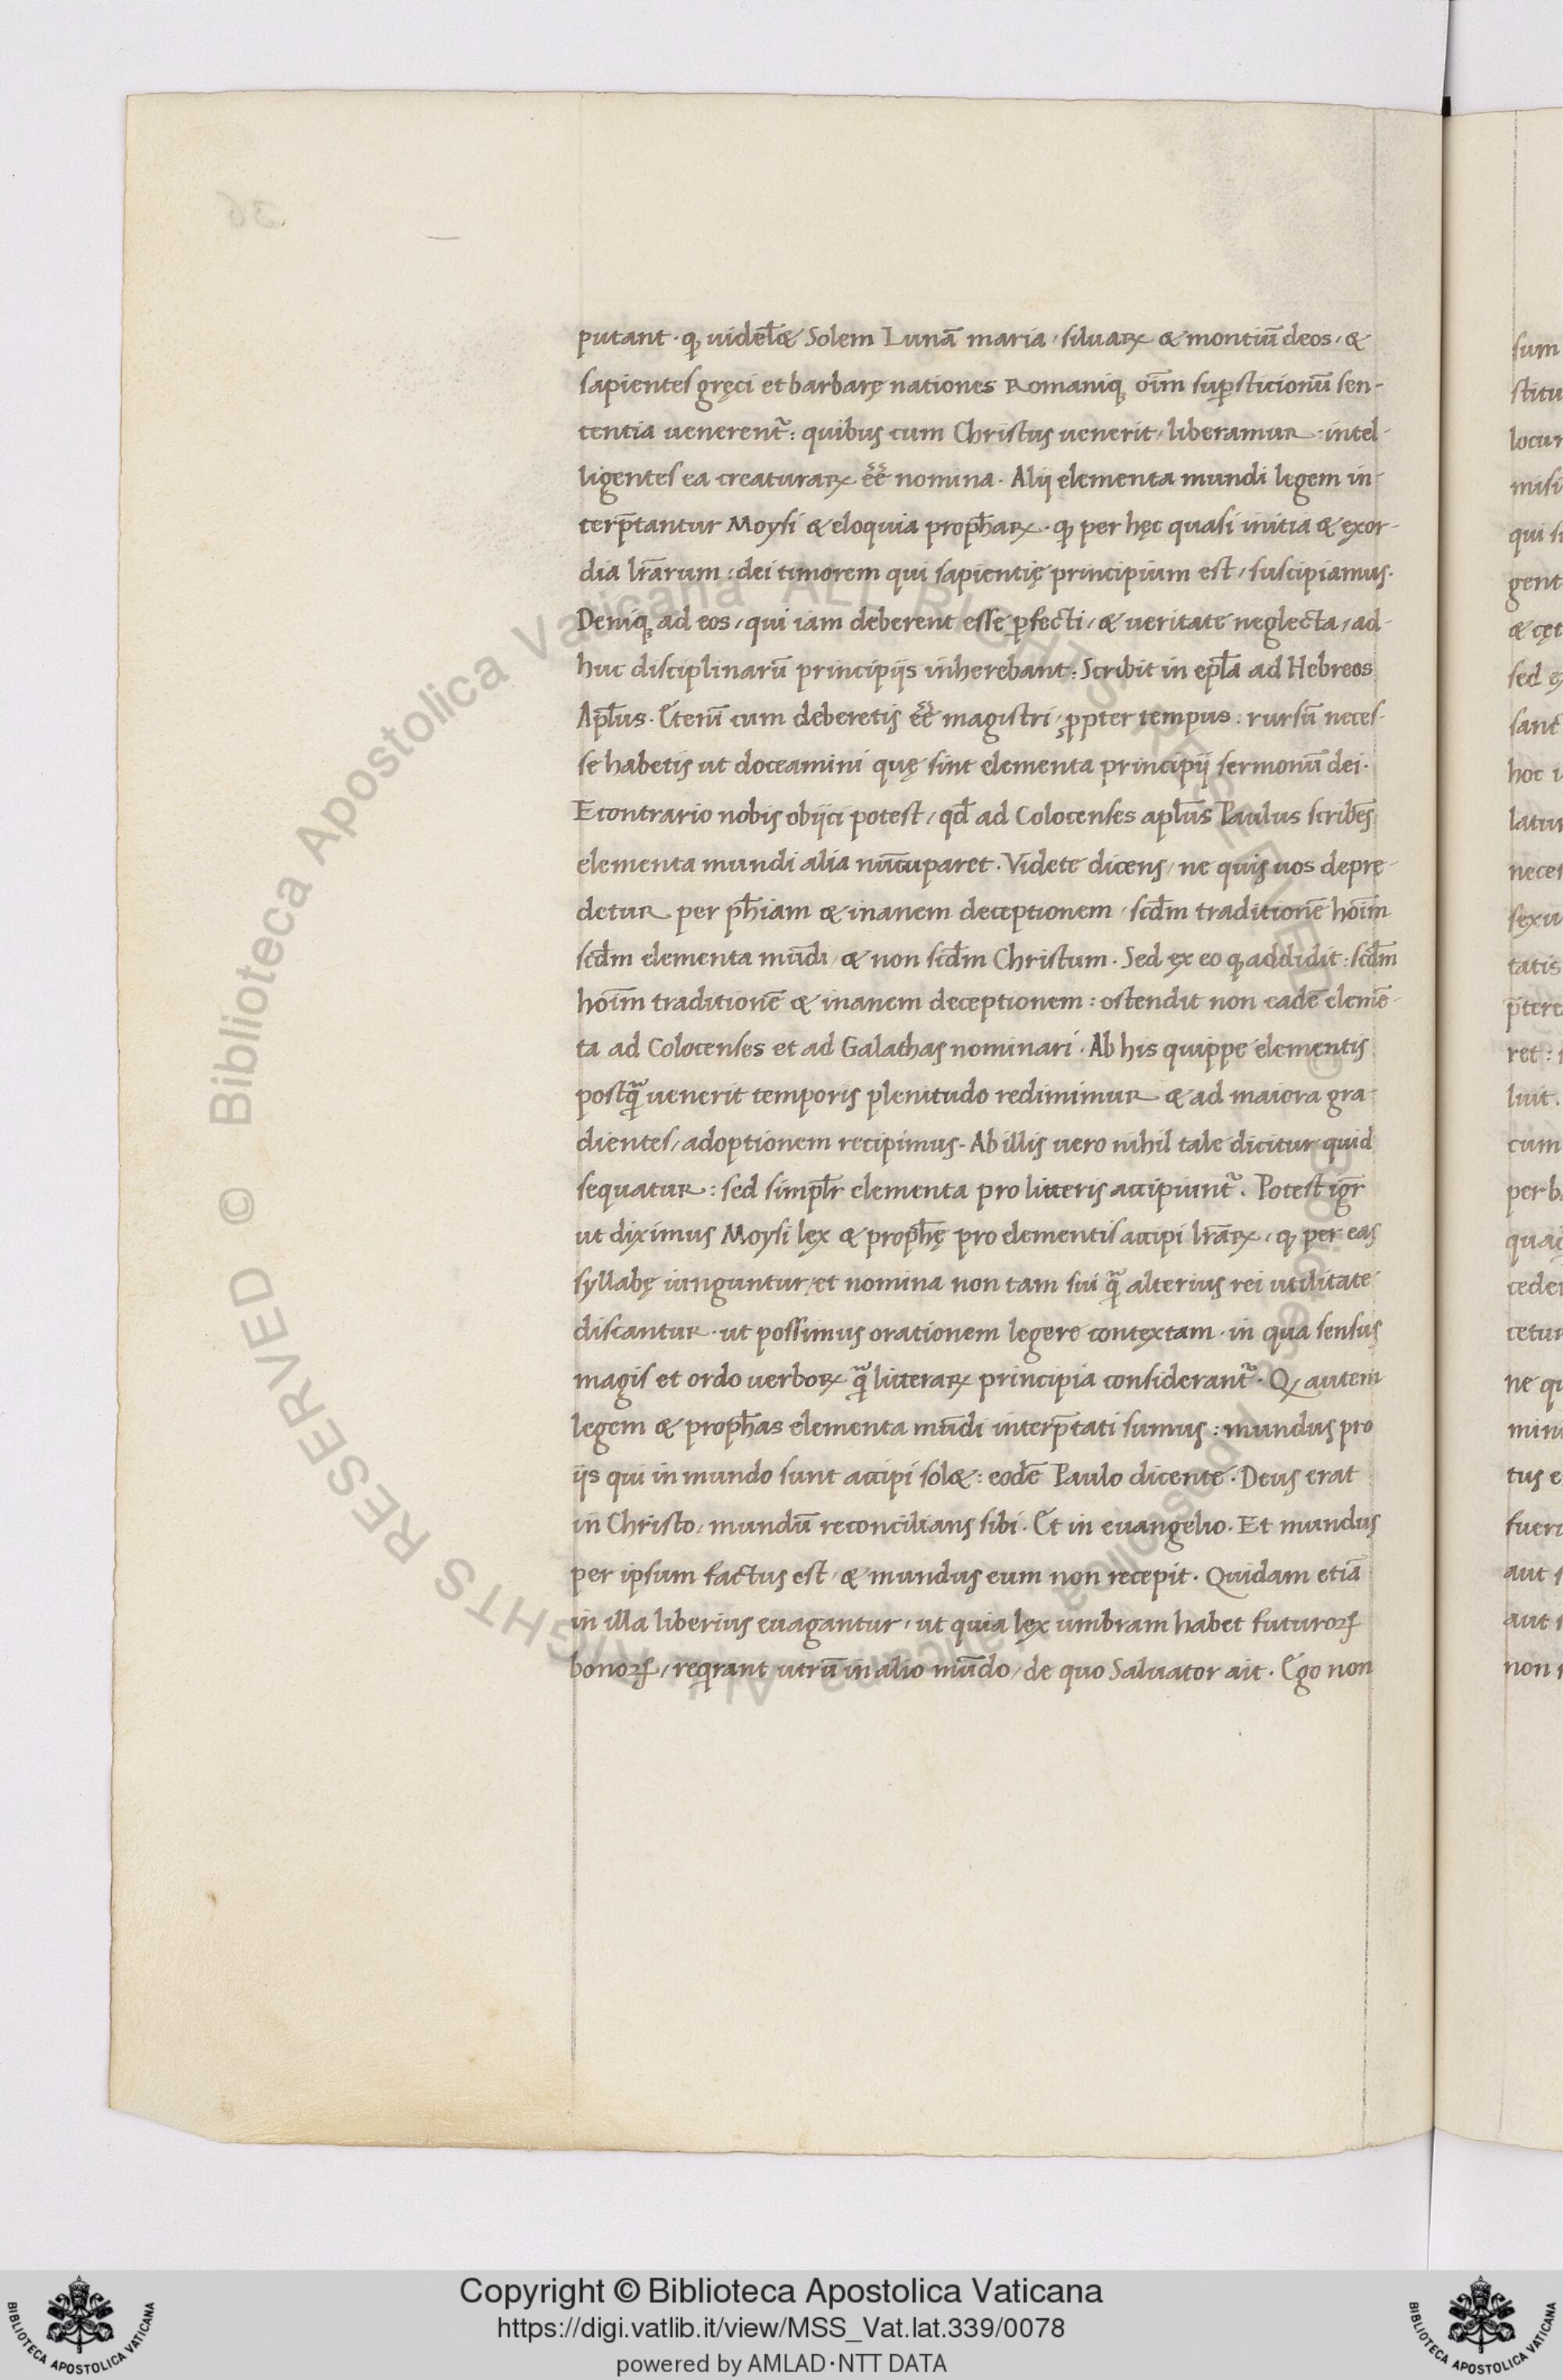 putant · ꝙ uidelꝫ & Solem Lunā maria / siluaꝝ & montiū deos / &
sapientes gręci et barbarę nationes Romaniqꝫ oīm suꝑsticionū sen-
tentia uenerent᷑ : quibus cum Christus uenerit / liberamur : intel-
ligentes ea creaturaꝝ eē nomina . Alij elementa mundi legem in-
terp̄tantur Moysi & eloquia prophaꝝ · ꝙ per hęc quasi initia & exor-
dia lr̄arum : dei timorem qui sapientię principium est / suscipiamus .
Deniqꝫ ad eos / qui iam deberent esse ꝑfecti / & veritate neglecta / ad-
huc disciplinarū principijs inherebant : Scribit in epl̄a ad Hebreos
Apl̄us . Etenī cum deberetis eē magistri / ꝓpter tempus : rursū neces-
se habetis ut doceamini quę sint elementa principij sermonū dei .
E contrario nobis obijci potest / qđ ad Colocenses apl̄us Paulus scribēs
elementa mundi alia nūcuparet . Videte dicens / ne quis uos deprę-
detur per phiam & inanem deceptionem / scđm traditionē hoīm
scđm elementa mūdi / & non scđm Christum . Sed ex eo ꝙ addidit : scđm
hoīm traditionē & inanem deceptionem : ostendit non eadē elemē-
ta ad Colocenses et ad Galathas nominari . Ab his quippe elementis
postꝗ̃ uenerit temporis plenitudo redimimur & ad maiora gra-
dientes / adoptionem recipimus . Ab illis uero nihil tale dicitur quid
sequatur : sed simplr̄ elementa pro litteris accipiunt᷑ . Potest igr̄
ut diximus Moysi lex & prophę pro elementis accipi lr̄aꝝ / ꝙ per eas
syllabę iunguntur / et nomina non tam sui ꝗ̃ alterius rei utilitate
discantur · ut possimus orationem legere contextam · in qua sensus
magis et ordo uerboꝝ ꝗ̃ litteraꝝ principia considerant᷑ . Ꝙ autem
legem & prophas elementa mūdi interp̄tati sumus : mundus pro
ijs qui in mundo sunt accipi sol& : eodē Paulo dicente . Deus erat
in Christo / mundū reconcilians sibi . Et in euangelio . Et mundus
per ipsum factus est / & mundus eum non recepit . Quidam etiā
in illa liberius euagantur / ut quia lex umbram habet futuroꝝ
bonoꝝ / reqͥrant utrū in alio mūdo / de quo Saluator ait . Ego non
© Biblioteca Apostolica Vaticana ALL RIGHTS RESERVED
Copyright © Biblioteca Apostolica Vaticana
https://digi.vatlib.it/view/MSS_Vat.lat.339/0078
powered by AMLAD·NTT DATA
BIBLIOTECA APOSTOLICA VATICANA
BIBLIOTECA APOSTOLICA VATICANA